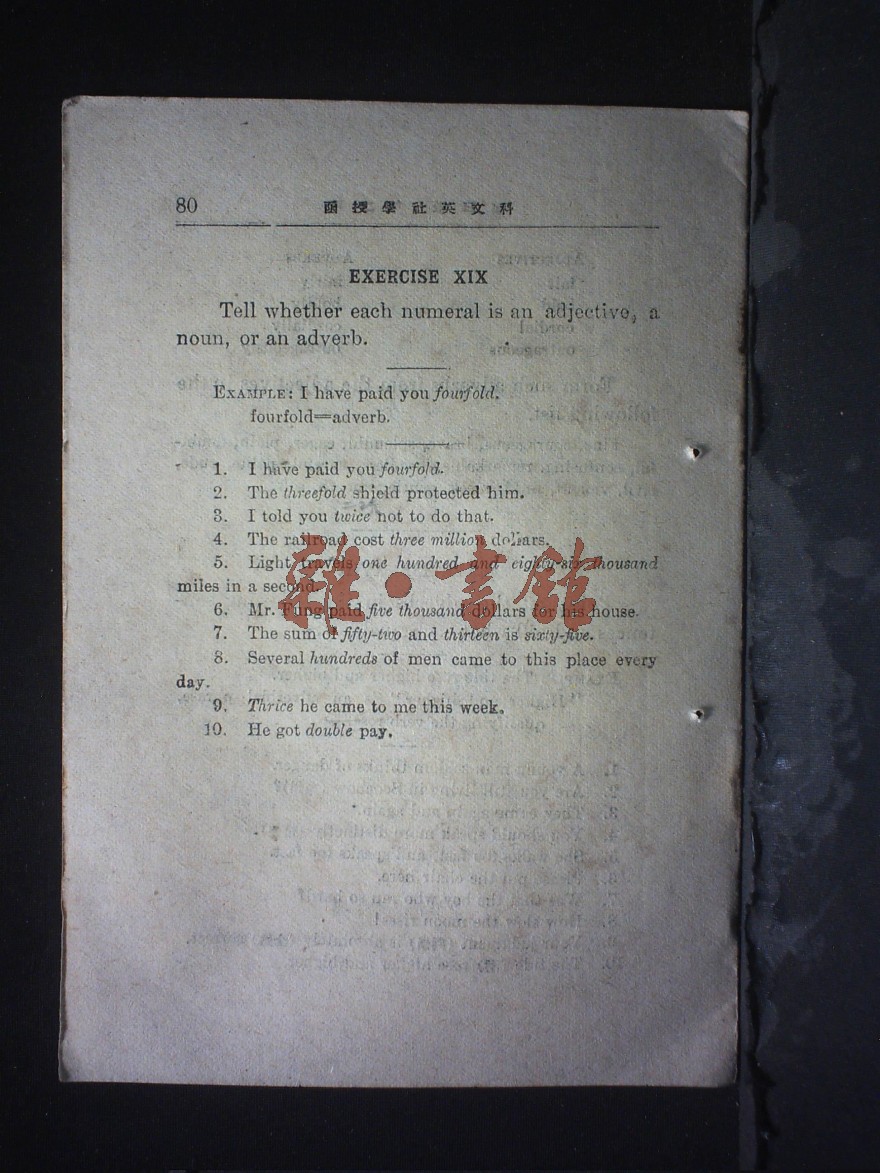 80 科文英社學授函
EXERCISE XIX
Tell whether each numeral is an adjective, a
noun, or an adverb.
EXAMPLE: I have paid you fourfold.
fourfold=adverb.
1. I have paid you fourfold.
2. The threefold shield protected him.
3. I told you twice not to do that.
4. The railroad cost three million dollars.
5. Light travels one hundred and eighty-six thousand
miles in a second.
6. Mr. Fung paid five thousand dollars for his house.
7. The sum of fifty-two and thirteen is sixty-five.
8. Several hundreds of men came to this place every
day.
9. Thrice he came to me this week.
10. He got double pay.
雜·書館